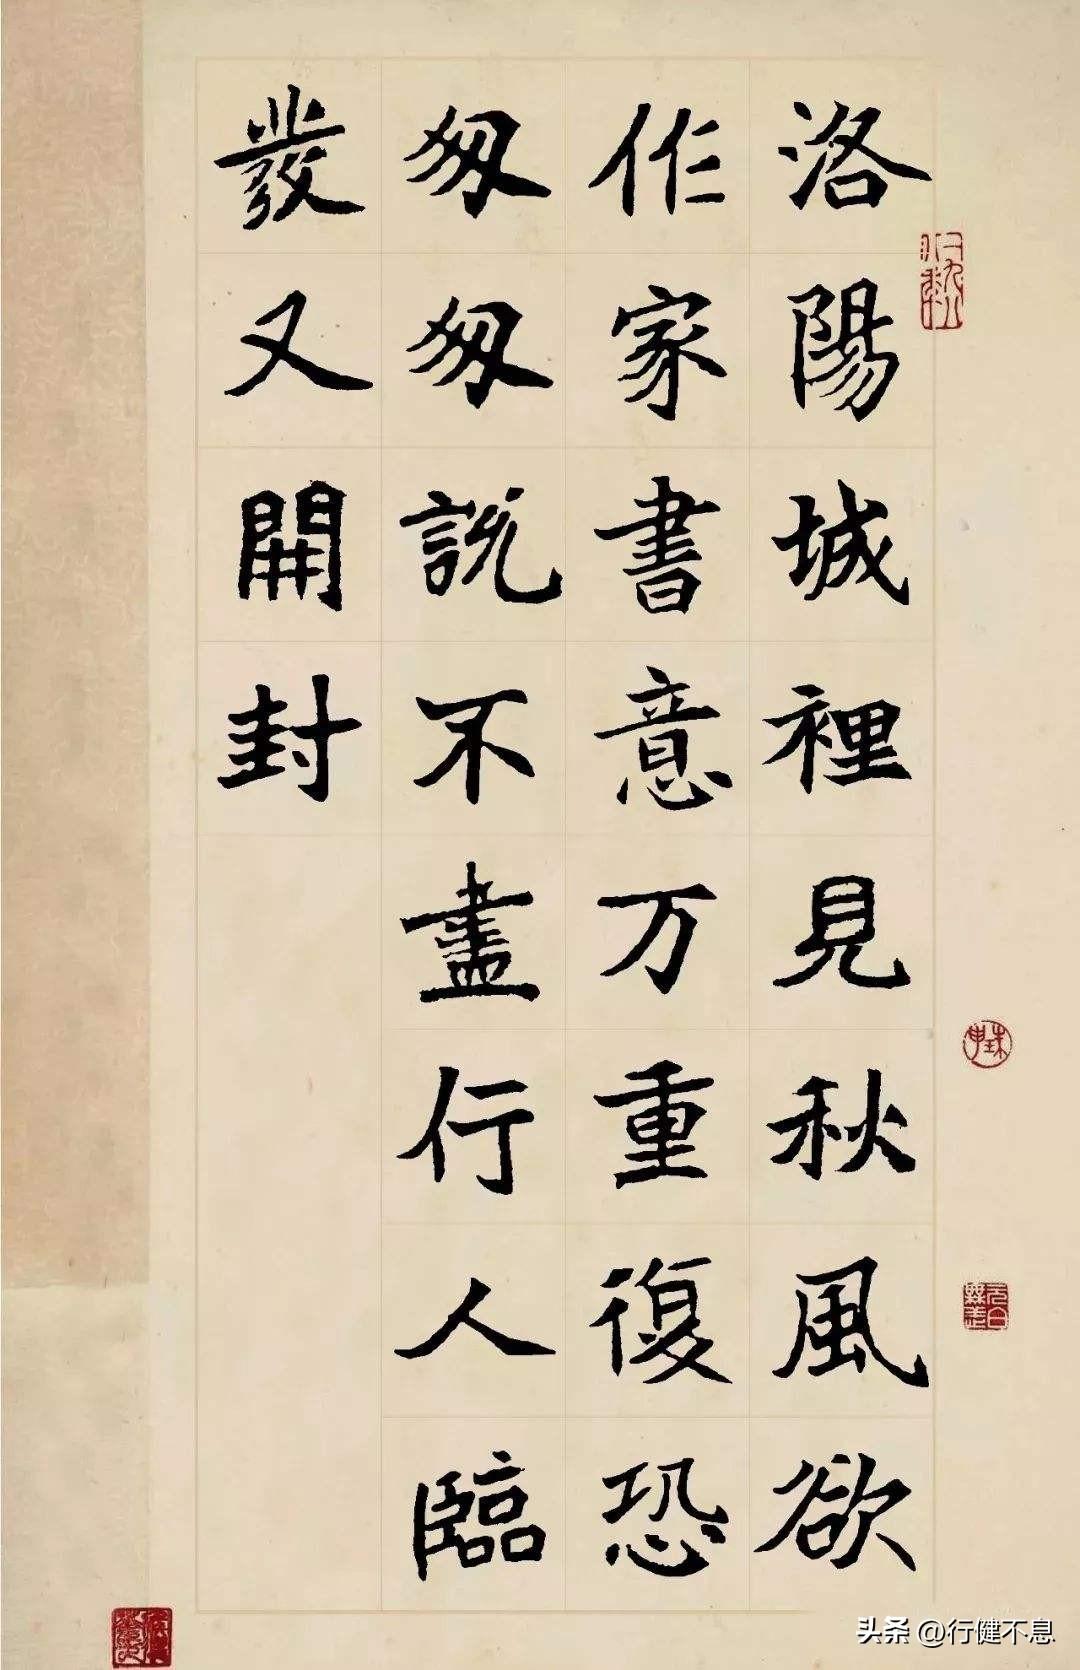 洛陽城裡見秋風欲
作家書意万重復恐
匆匆説不盡行人臨
發又開封
头条 @行健不息